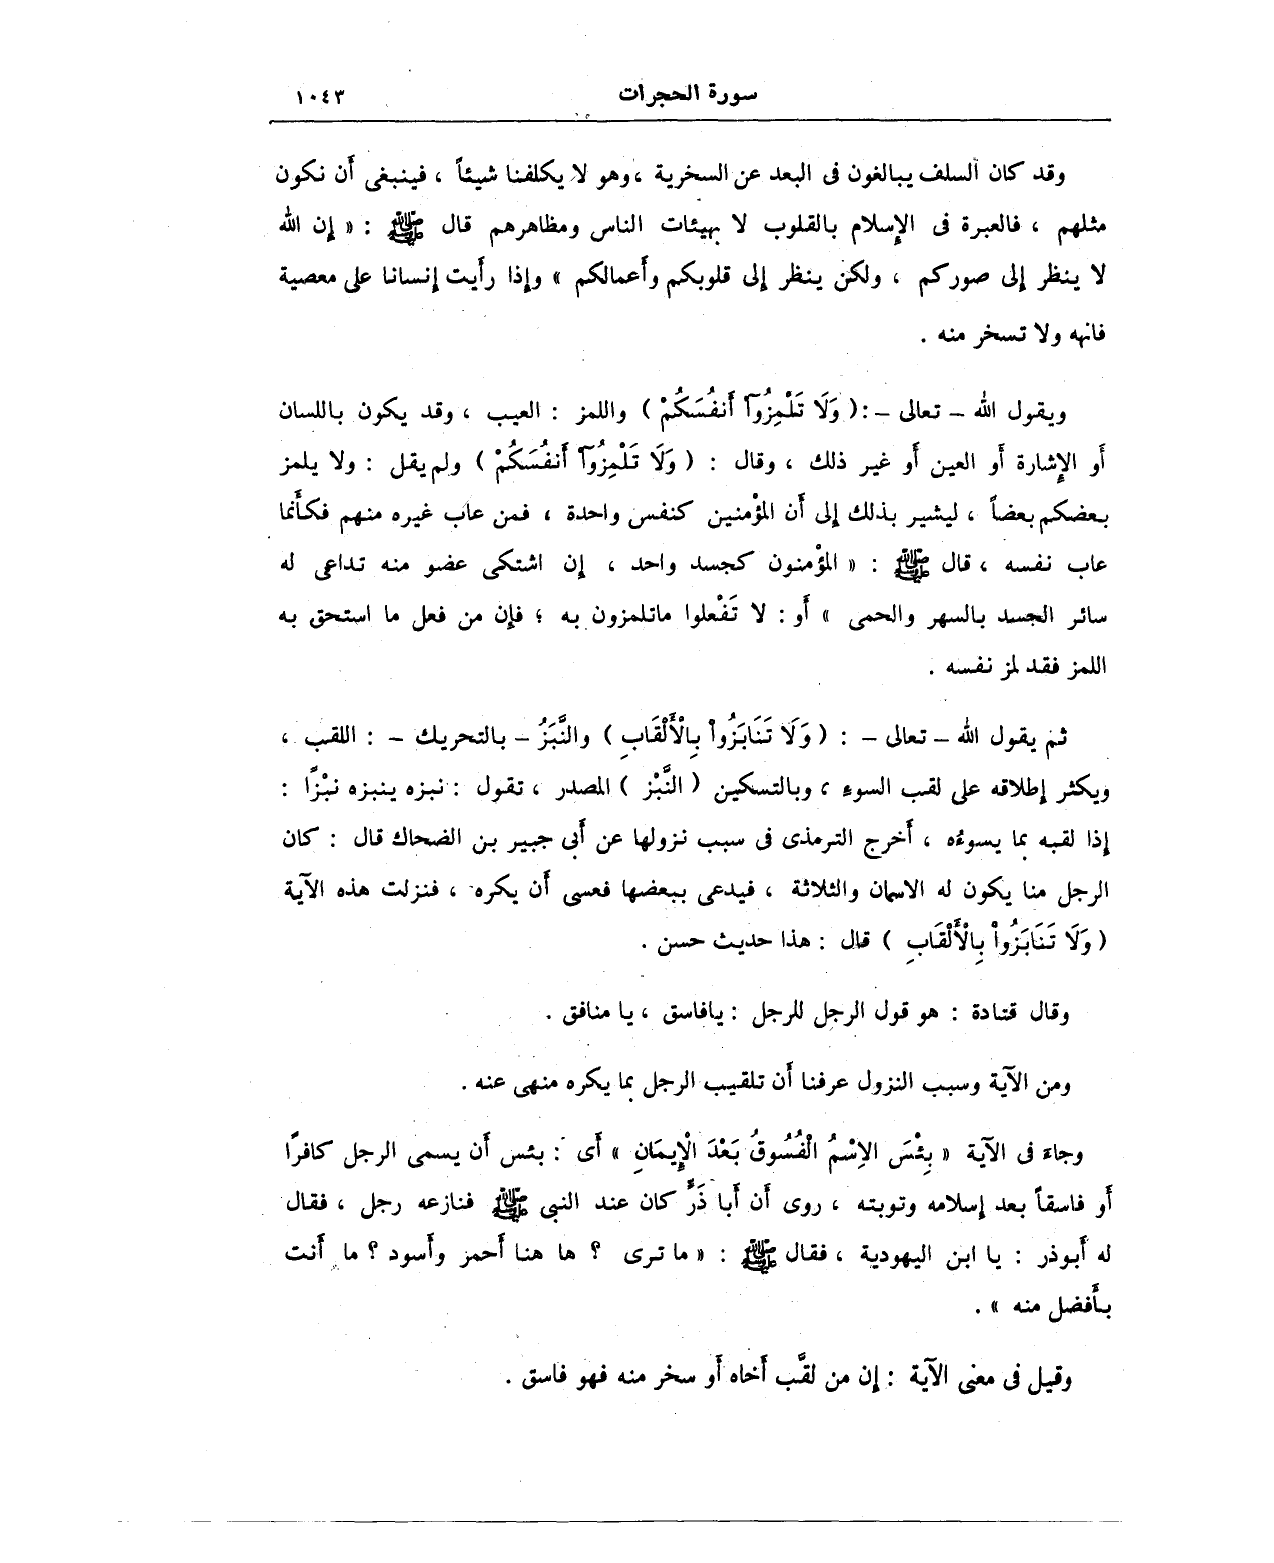 سورة الحجرات ١٠٤٣
وقد كان السلف يبالغون فى البعد عن السخرية ، وهو لا يكلفنا شيئاً ، فينبغى أن نكون
مثلهم ، فالعبرة فى الإسلام بالقلوب لا بهيئات الناس ومظاهرهم قال ﷺ : « إن الله
لا ينظر إلى صوركم ، ولكن ينظر إلى قلوبكم وأعمالكم » وإذا رأيت إنسانا على معصية
فانهه ولا تسخر منه .
ويقول الله – تعالى – : ( وَلَا تَلْمِزُوٓاْ أَنفُسَكُمْ ) واللمز : العيب ، وقد يكون باللسان
أو الإشارة أو العين أو غير ذلك ، وقال : ( وَلَا تَلْمِزُوٓاْ أَنفُسَكُمْ ) ولم يقل : ولا يلمز
بعضكم بعضاً ، ليشير بذلك إلى أن المؤْمنين كنفس واحدة ، فمن عاب غيره منهم فكأَنما
عاب نفسه ، قال ﷺ : « المؤْمنون كجسد واحد ، إن اشتكى عضو منه تداعى له
سائر الجسد بالسهر والحمى » أو : لا تَفْعلوا ماتلمزون به ؛ فإن من فعل ما استحق به
اللمز فقد لمز نفسه .
ثم يقول الله – تعالى – : ( وَلَا تَنَابَزُواْ بِالْأَلْقَابِ ) والنَّبَزُ – بالتحريك – : اللقب ،
ويكثر إطلاقه على لقب السوء ، وبالتسكين ( النَّبْز ) المصدر ، تقول : نبزه ينبزه نبْزًا :
إذا لقبه بما يسوءُه ، أخرج الترمذى فى سبب نزولها عن أبى جبير بن الضحاك قال : كان
الرجل منا يكون له الاسمان والثلاثة ، فيدعى ببعضها فعسى أن يكره ، فنزلت هذه الآية
( وَلَا تَنَابَزُواْ بِالْأَلْقَابِ ) قال : هذا حديث حسن .
وقال قتادة : هو قول الرجل للرجل : يافاسق ، يا منافق .
ومن الآية وسبب النزول عرفنا أن تلقيب الرجل بما يكره منهى عنه .
وجاءَ فى الآية « بِئْسَ الاِسْمُ الْفُسُوقُ بَعْدَ الْإِيمَانِ » أى : بئس أن يسمى الرجل كافرًا
أو فاسقاً بعد إسلامه وتوبته ، روى أن أبا ذَرٍّ كان عند النبى ﷺ فنازعه رجل ، فقال
له أبوذر : يا ابن اليهودية ، فقال ﷺ : « ما ترى ؟ ها هنا أحمر وأسود ؟ ما أنت
بأفضل منه » .
وقيل فى معنى الآية : إن من لقَّب أخاه أو سخر منه فهو فاسق .